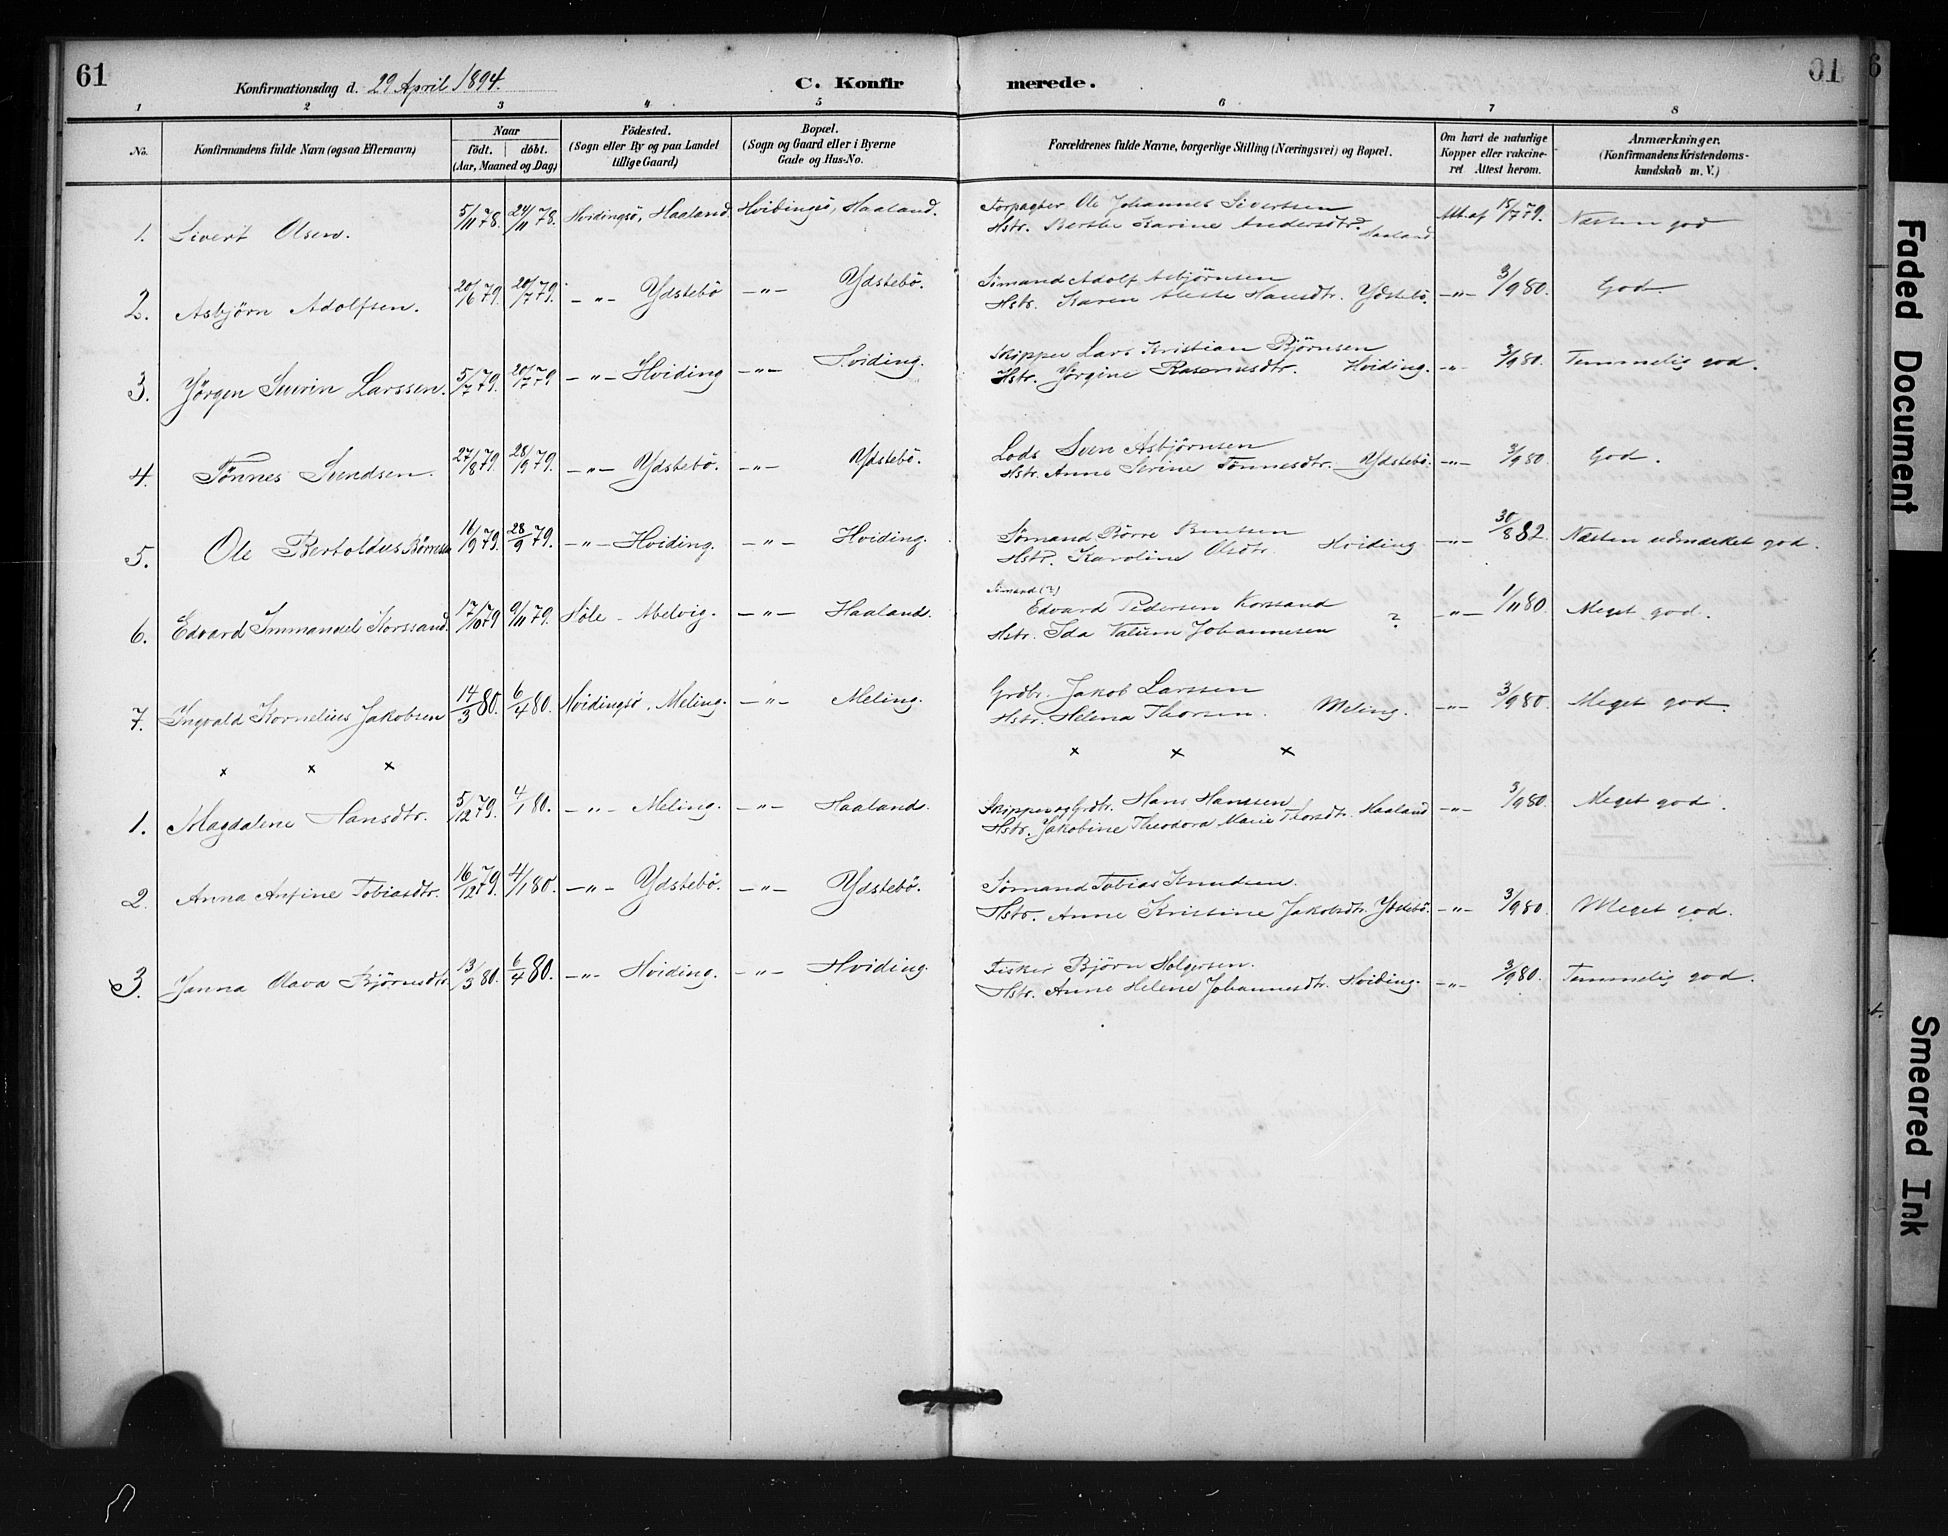 61
Konfirmationsdag d. 29 April 1894.
C. Konfirmerede.
61
1 2 3 4 5 6 7 8
No.
Konfirmandens fulde Navn (ogsaa Efternavn)
Naar
födt. döbt.
(Aar, Maaned og Dag)
Födested.
(Sogn eller By og paa Landet
tillige Gaard)
Bopæl.
(Sogn og Gaard eller i Byerne
Gade og Hus-No.
Forældrenes fulde Navne, borgerlige Stilling (Næringsvei) og Bopæl.
Om havt de naturlige
Kopper eller vakcine-
ret Attest herom.
Anmærkninger.
(Konfirmandens Kristendoms-
kundskab m. V.)
1. Sivert Olsen. 5/11 78. 24/11 78. Hvidingsö, Haaland. Hvidingsö, Haaland. Forpagter Ole Johannes Sivertsen
Hstr. Berthe Karine Andersdtr. Haaland Att. af 15/7 79. Næsten god
2. Asbjörn Adolfsen. 20/6 79. 20/7 79. -"- Ydstebö -"- Ydstebö. Sömand Adolf Asbjörnsen
Hstr. Karen Hansdtr. Ydstebö. -"- 3/9 80. God.
3. Jörgen Severin Larssen. 5/7 79. 20/7 79 -"- Hviding -"- Hviding. Skipper Lars Kristian Björnsen
Hstr. Jörgine Rasmusdtr. Hviding. -"- 3/9 80. Temmelig god.
4. Tönnes Svendsen. 27/8 79. 28/9 79. -"- Ydstebö. -"- Ydstebö. Lods Sven Asbjörnsen
Hstr. Anne Serine Tönnesdtr. Ydstebö. -"- 3/9 80. God.
5. Ole Bertoldus Börresen 16/9 79. 28/9 79. -"- Hviding. -"- Hviding. Sömand Börre Bentsen
Hstr. Karoline Olsdtr. Hviding -"- 30/8 82. Næsten udmærket god.
6. Edvard Immanuel Korssand. 17/10 79 9/11 79. Höle - Melvig. -"- Haaland. Sömand (?)
Edvard Pedersen Korssand
Hstr. Ida Johannesen ? -"- 1/11 80. Meget god.
7. Ingvald Kornelius Jakobsen 14/3 80. 6/4 80. Hvidingsö, Meling. -"- Meling. Grdbr. Jakob Larssen
Hstr. Helena Thorsen. Meling. -"- 3/9 80. Meget god.
x x x x x x
1. Magdalene Hansdtr. 5/12 79. 4/1 80. -"- Meling. -"- Haaland. Skipper og Grdbr. Hans Hanssen
Hstr. Jakobine Theodora Marie Thorsdtr. Haaland -"- 3/9 80. Meget god.
2. Anna Anfine Tobiasdtr. 16/12 79. 4/1 80. -"- Ydstebö. -"- Ydstebö. Sömand Tobias Knudsen.
Hstr. Anne Kristine Jakobsdtr. Ydstebö. -"- 3/9 80. Meget god.
3. Janna Olava Björnsdtr. 13/3 80. 6/4 80. -"- Hviding. -"- Hviding. Fisker Björn Holgersen.
Hstr. Anne Helene Johannesdtr. Hviding. -"- 3/9 80. Temmelig god.
Faded Document
Smeared Ink